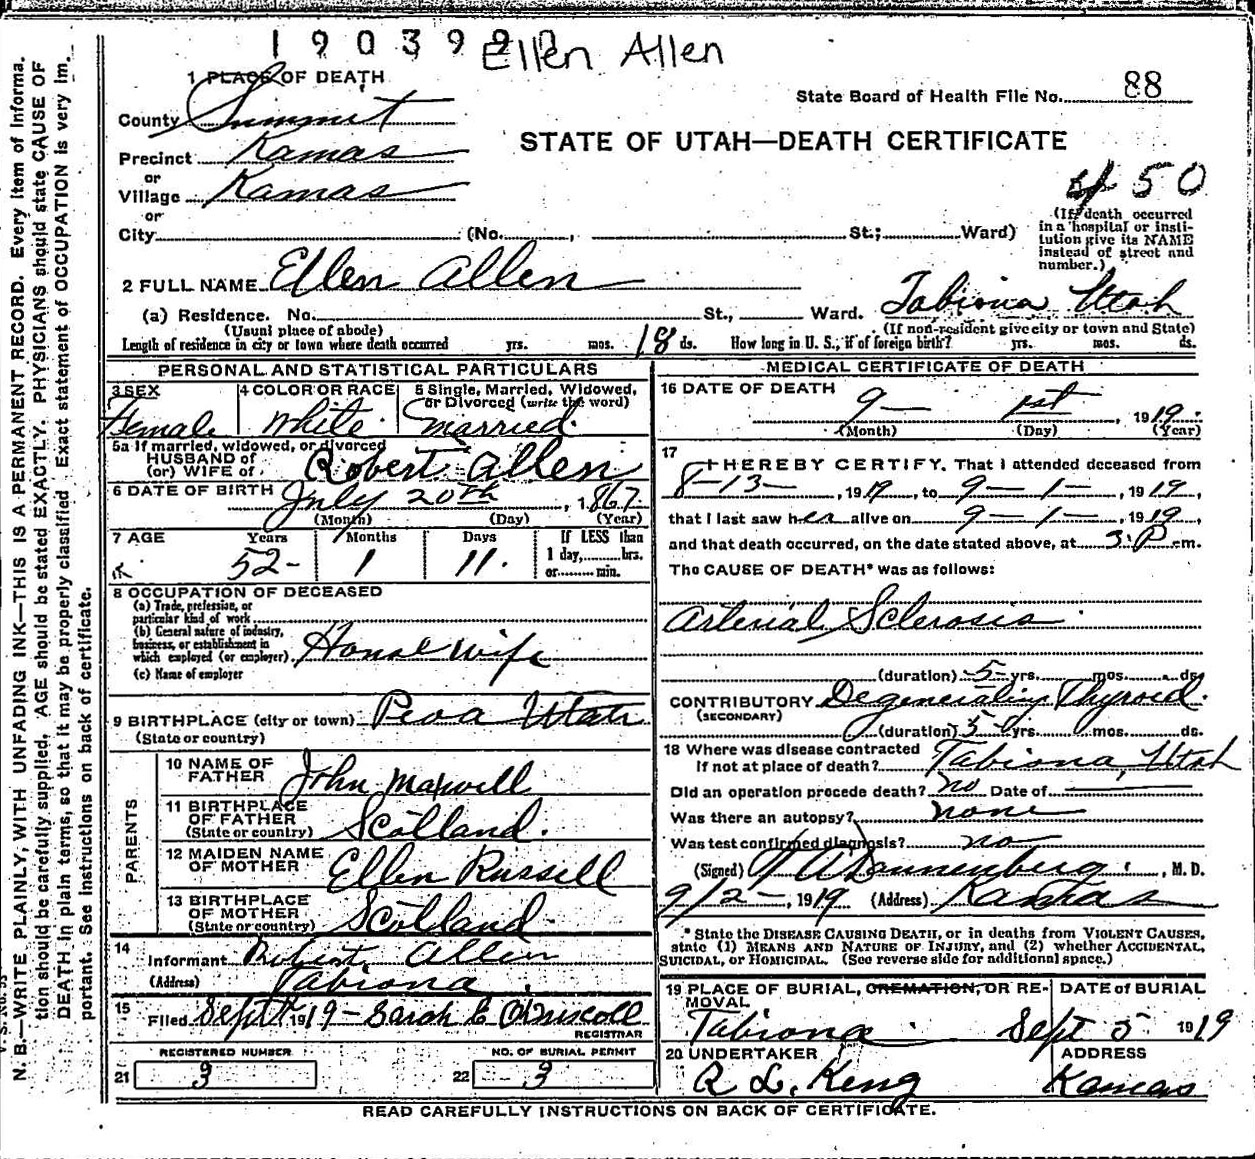 1 9 0 3 9 9
Ellen Allen
1 PLACE OF DEATH
State Board of Health File No. 88
County Summit
STATE OF UTAH—DEATH CERTIFICATE
Precinct Kamas
or
Village Kamas
50
or
City (No. , St.; Ward)
(If death occurred in a hospital or institution give its NAME instead of street and number.)
2 FULL NAME Ellen Allen
(a) Residence. No. St., Ward. Tabiona Utah
(Usual place of abode) (If non-resident give city or town and State)
Length of residence in city or town where death occurred yrs. mos. 18 ds. How long in U. S., if of foreign birth? yrs. mos. ds.
PERSONAL AND STATISTICAL PARTICULARS
3 SEX
Female
4 COLOR OR RACE
White
5 Single, Married, Widowed, or Divorced (write the word)
Married.
5a If married, widowed, or divorced
HUSBAND of
(or) WIFE of Robert Allen
6 DATE OF BIRTH July 20th, 1867
(Month) (Day) (Year)
7 AGE Years Months Days If LESS than
52 - 1 11. 1 day, hrs.
or min.
8 OCCUPATION OF DECEASED
(a) Trade, profession, or
particular kind of work
(b) General nature of industry,
business, or establishment in
which employed (or employer) House wife
(c) Name of employer
9 BIRTHPLACE (city or town) Peoa Utah
(State or country)
PARENTS
10 NAME OF FATHER John Maxwell
11 BIRTHPLACE OF FATHER (State or country) Scotland.
12 MAIDEN NAME OF MOTHER Ellen Russell
13 BIRTHPLACE OF MOTHER (State or country) Scotland
14 Informant Robert Allen
(Address) Tabiona.
15 Filed Sept 1919 - Sarah E O'Driscoll
REGISTRAR
REGISTERED NUMBER NO. OF BURIAL PERMIT
21 3 22 3
MEDICAL CERTIFICATE OF DEATH
16 DATE OF DEATH
9 - 1st 1919.
(Month) (Day) (Year)
17 I HEREBY CERTIFY, That I attended deceased from
8-13-, 1919, to 9-1-, 1919,
that I last saw her alive on 9-1-, 1919,
and that death occurred, on the date stated above, at 3 P.m.
The CAUSE OF DEATH* was as follows:
Arterial Sclerosis
(duration) 5 yrs. mos. ds.
CONTRIBUTORY Degenerating Thyroid.
(SECONDARY)
(duration) 5 yrs. mos. ds.
18 Where was disease contracted
If not at place of death? Tabiona, Utah
Did an operation precede death? no Date of
Was there an autopsy? none
Was test confirmed diagnosis? no
(Signed) Dannenberg, M. D.
9/2-, 1919 (Address) Kamas
* State the DISEASE CAUSING DEATH, or in deaths from VIOLENT CAUSES,
state (1) MEANS AND NATURE OF INJURY, and (2) whether ACCIDENTAL,
SUICIDAL, or HOMICIDAL. (See reverse side for additional space.)
19 PLACE OF BURIAL, CREMATION, OR REMOVAL DATE of BURIAL
Tabiona. Sept 5 1919
20 UNDERTAKER ADDRESS
Kamas
READ CAREFULLY INSTRUCTIONS ON BACK OF CERTIFICATE.
N. B.—WRITE PLAINLY, WITH UNFADING INK—THIS IS A PERMANENT RECORD. Every item of information should be carefully supplied. AGE should be stated EXACTLY. PHYSICIANS should state CAUSE OF DEATH in plain terms, so that it may be properly classified. Exact statement of OCCUPATION is very important. See Instructions on back of certificate.